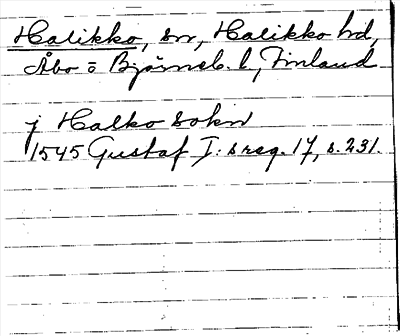 Halikko, sn, Halikko hd,
Åbo o Björneb. l, Finland
j Halko sokn
1545 Gustaf I:s reg. 17, s. 231.